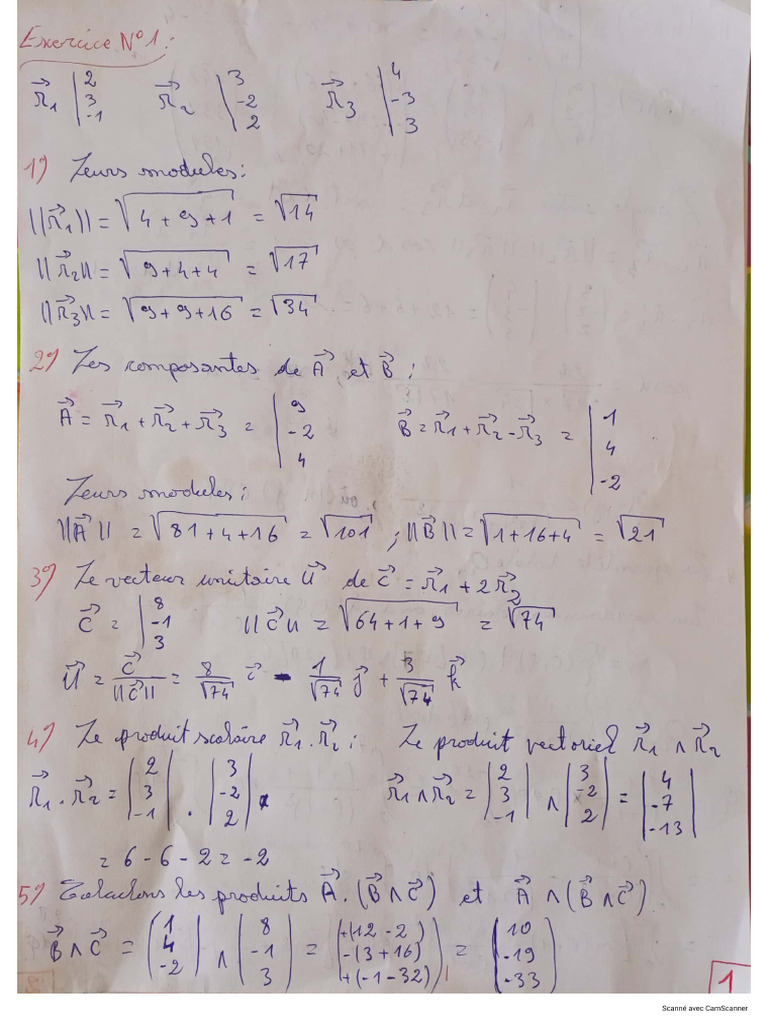 Exercice N°1:
r⃗1 | 2 3 -1   r⃗2 | 3 -2 2   r⃗3 | 4 -3 3
1°) Leurs modules:
||r⃗1|| = √(4+9+1) = √14
||r⃗2|| = √(9+4+4) = √17
||r⃗3|| = √(9+9+16) = √34
2°) Les composantes de A⃗ et B⃗ :
A⃗ = r⃗1 + r⃗2 + r⃗3 = | 9 -2 4   B⃗ = r⃗1 + r⃗2 - r⃗3 = | 1 4 -2
Leurs modules:
||A⃗|| = √(81+4+16) = √101 ; ||B⃗|| = √(1+16+4) = √21
3°) Le vecteur unitaire U⃗ de C⃗ = r⃗1 + 2r⃗2
C⃗ = | 8 -1 3   ||C⃗|| = √(64+1+9) = √74
U⃗ = C⃗/||C⃗|| = 8/√74 i⃗ - 1/√74 j⃗ + 3/√74 k⃗
4°) Le produit scalaire r⃗1 . r⃗2 :   Le produit vectoriel r⃗1 ∧ r⃗2
r⃗1 . r⃗2 = | 2 3 -1 | . | 3 -2 2 |   r⃗1 ∧ r⃗2 = | 2 3 -1 | ∧ | 3 -2 2 | = | 4 -7 -13 |
= 6 - 6 - 2 = -2
5°) Calculons les produits A⃗ . (B⃗ ∧ C⃗) et A⃗ ∧ (B⃗ ∧ C⃗)
B⃗ ∧ C⃗ = ( 1 4 -2 ) ∧ ( 8 -1 3 ) = ( +(12-2) -(3+16) +(-1-32) ) = ( 10 -19 -33 )
1
Scanné avec CamScanner